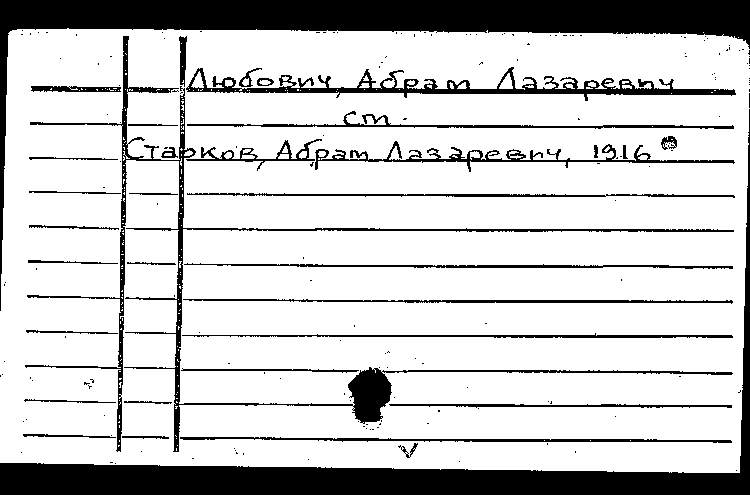 Любович, Абрам Лазаревич
ст.
Старков, Абрам Лазаревич, 1916